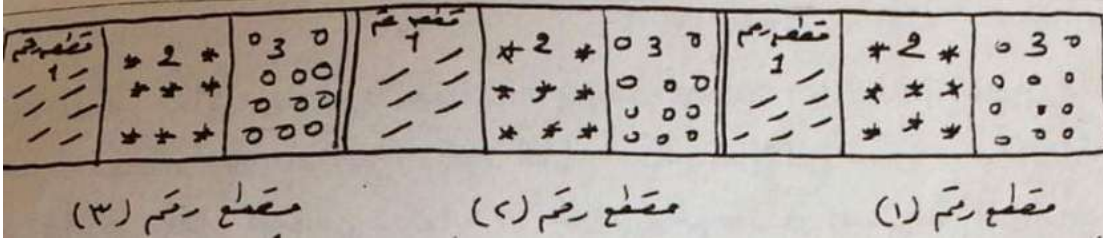 قطعہ رقم 1 2 3 قطعہ رقم 1 2 3 قطعہ رقم 1 2 3
مقطع رقم (١) مقطع رقم (٢) مقطع رقم (٣)